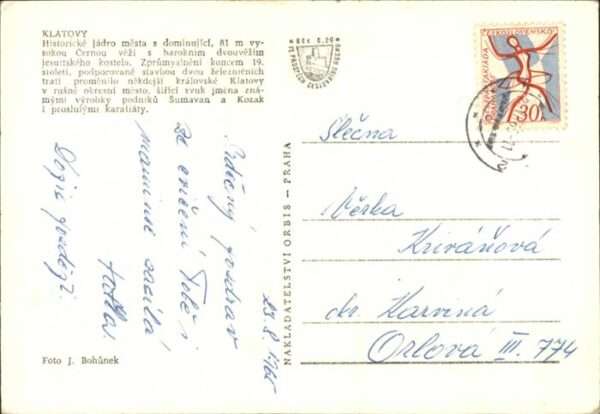 KLATOVY
Historické jádro města s dominující, 81 m vy-
sokou Černou věží s barokním dvouvěžím
jesuitského kostela. Zprůmyslnění koncem 19.
století, podporované stavbou dvou železničních
tratí proměnilo někdejší královské Klatovy
v rušné okresní město, šířící zvuk jména zná-
mými výrobky podniků Šumavan a Kozak
i proslulými karafiáty.
Kčs 0,20
ČESKOSLOVENSKO
30
Srdečný pozdrav
ze cvičení Tobě i
mamince zasílá
táta
23.8.1965
NAKLADATELSTVÍ ORBIS — PRAHA
Slečna
Věrka
Kriváňová
okr. Karviná
Orlová III. 774
Foto J. Bohůnek